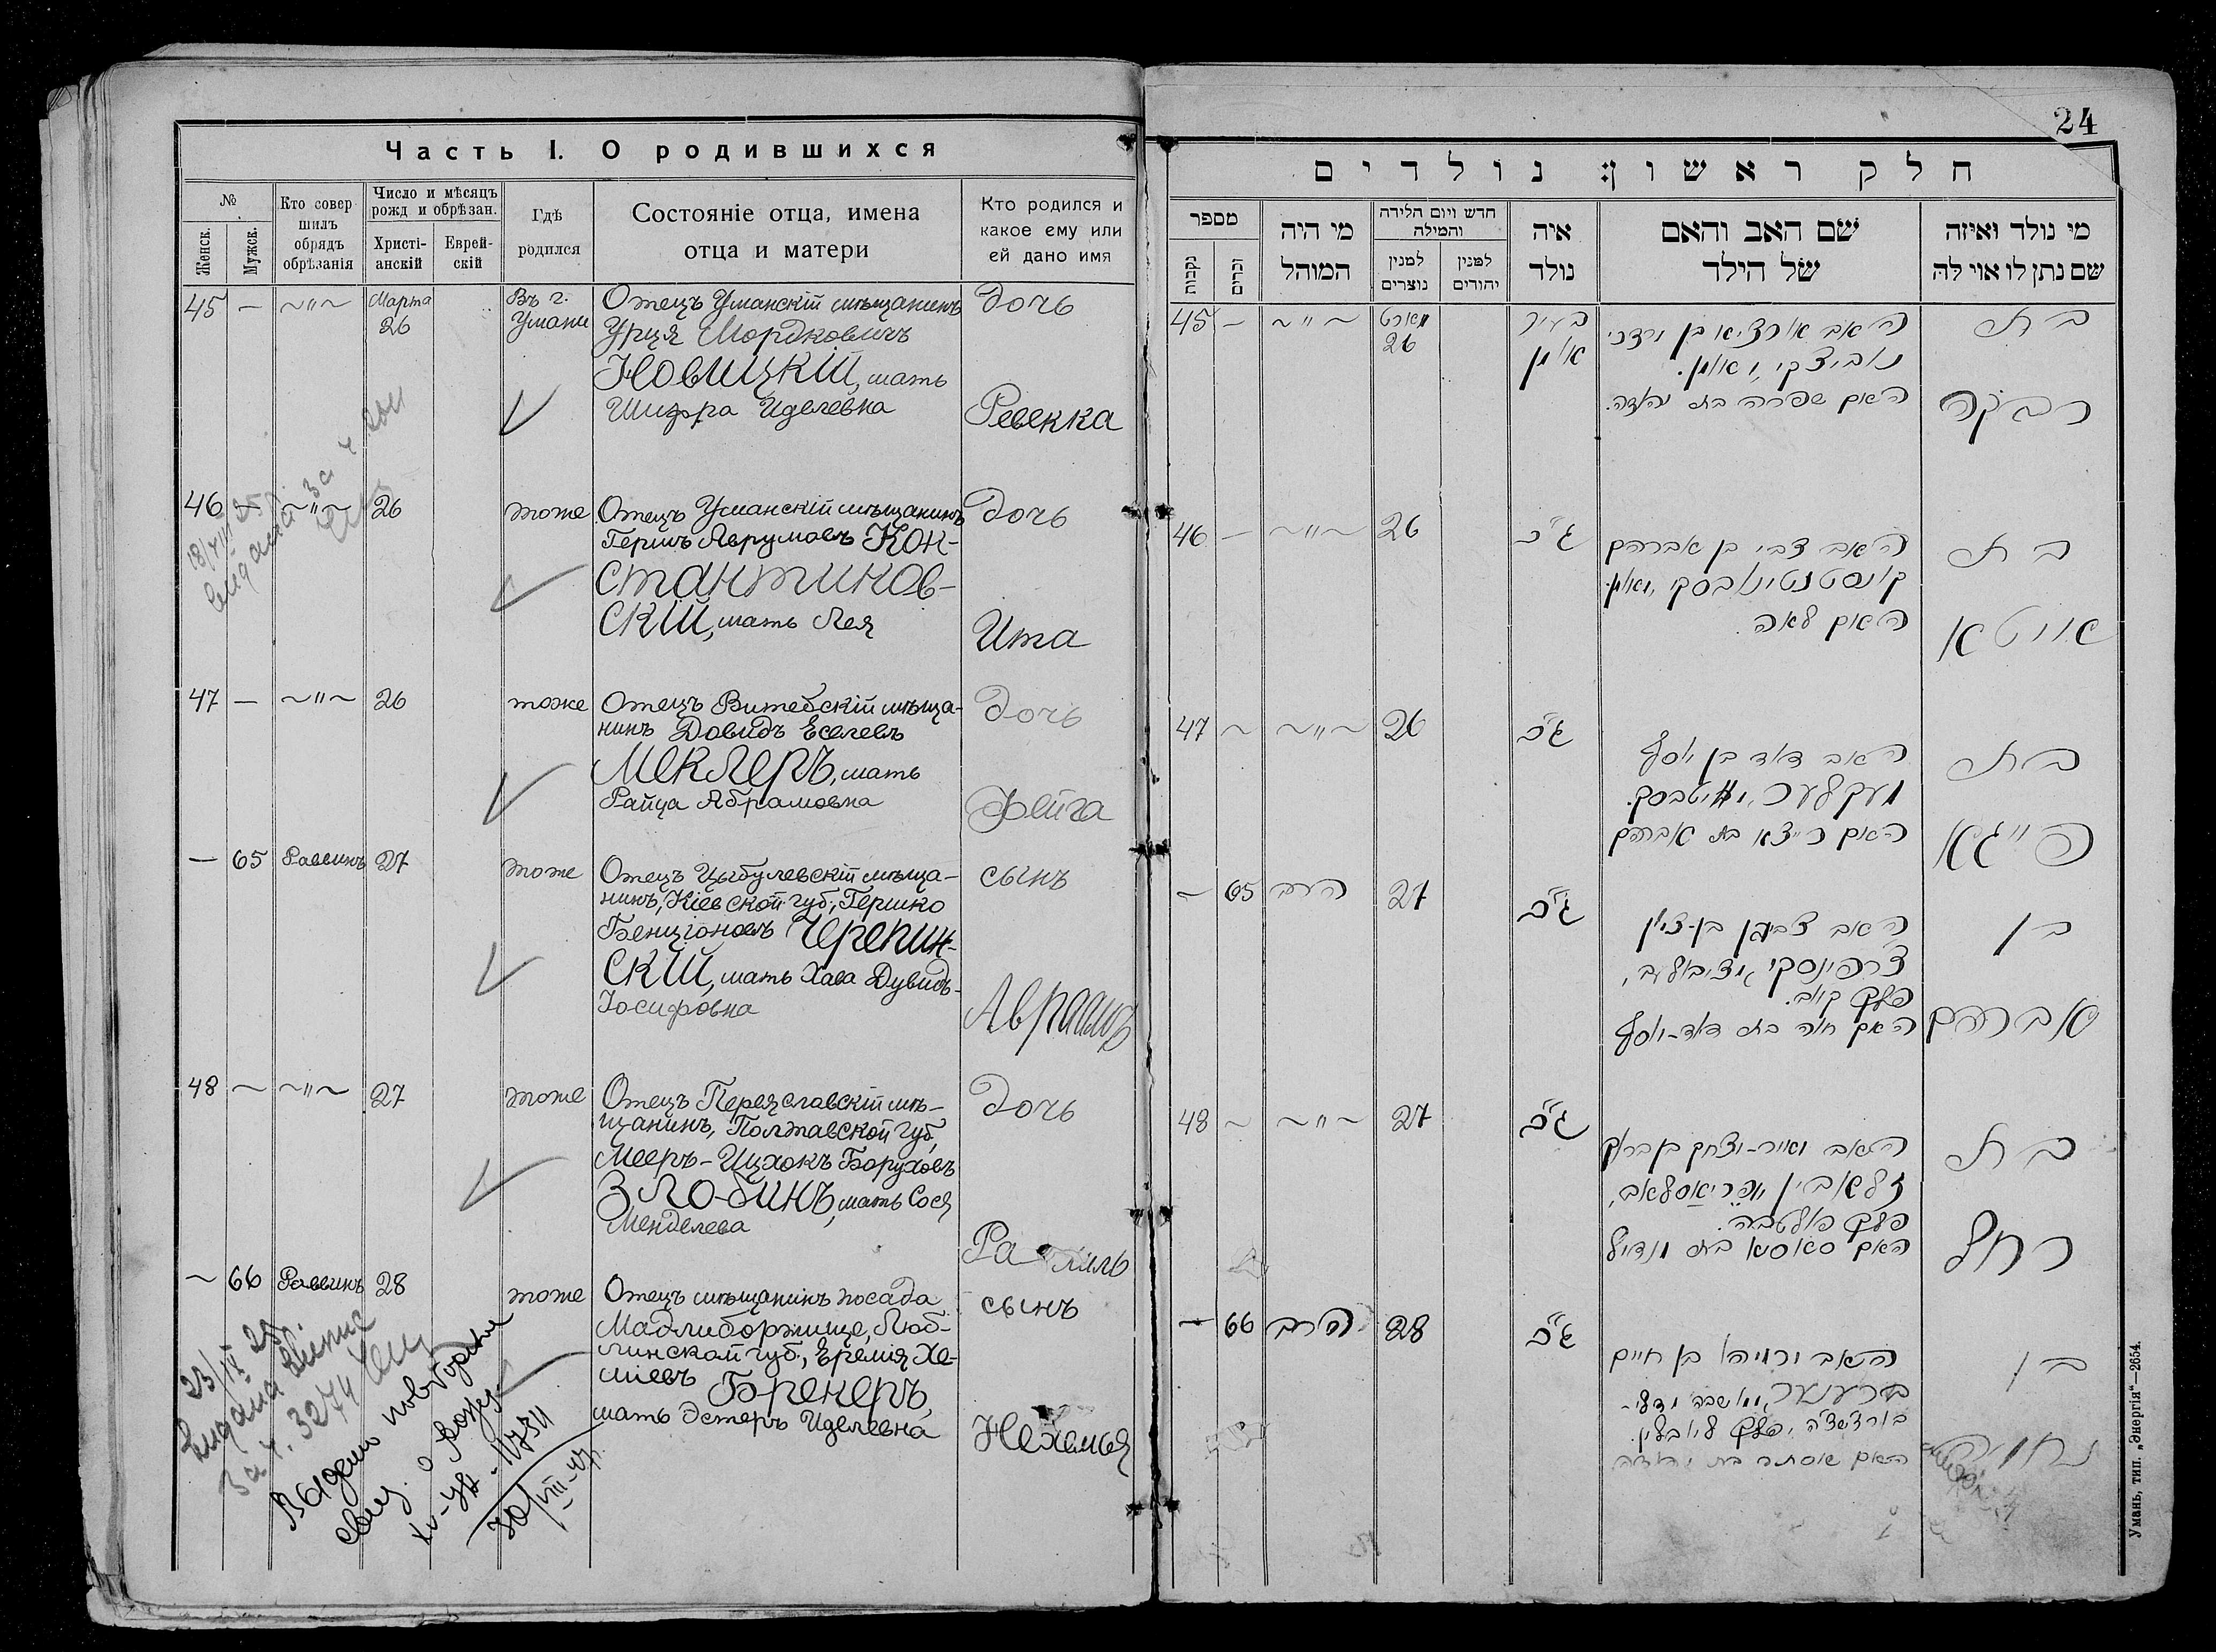 Часть I. О родившихся
№
Женск.
Мужск.
Кто совер
шилъ
обрядъ
обрѣзанія
Число и мѣсяцъ
рожд и обрѣзан.
Христі-
анскій
Еврей-
скій
Гдѣ
родился
Состояніе отца, имена
отца и матери
Кто родился и
какое ему или
ей дано имя
45 — ~"~ Марта 26 Въ г. Умани
Отецъ Уманскій мѣщанинъ
Урця Мордковичъ
Новицкій, мать
Шифра Иделевна
дочь
Ревекка
46 ~"~ 26 тоже
Отецъ Уманскій мѣщанинъ
Гершъ Аврумовъ Кон-
стантинов-
скій, мать Лея
дочь
Ита
47 — ~"~ 26 тоже
Отецъ Витебскій мѣща-
нинъ Довидъ Еселевъ
Меклеръ, мать
Райца Абрамовна
дочь
Фейга
— 65 Раввинъ 27 тоже
Отецъ Цыбулевскій мѣща-
нинъ, Кіевской губ., Гершко
Бенціоновъ Черепин-
скій, мать Хава Дувидъ-
Іосифовна
сынъ
Авраамъ
48 ~ ~"~ 27 тоже
Отецъ Переяславскій мѣ-
щанинъ, Полтавской губ,
Мееръ-Ицхокъ Боруховъ
Злобинъ, мать Сося
Менделева
дочь
Рахиль
~ 66 Раввинъ 28 тоже
Отецъ мѣщанинъ посада
Мадлиборжице, Люб-
линской губ., Еремія Хе-
міевъ Бренеръ,
мать Эстеръ Иделевна
сынъ
Нехемья
23/IV 25
за ч. 3274
Выдано повторне
свид. о рожд.
24
חלק ראשון: נולדים
מספר
נקבות
זכרים
מי היה
המוהל
חדש ויום הלידה
והמילה
למנין
נוצרים
למנין
יהודים
איה
נולד
שם האב והאם
של הילד
מי נולד ואיזה
שם נתן לו אוי לה
45 — ~"~ מארט 26 בעיר אומן
האב אורציא בן מרדכי
נוביצקי, מאומן.
האם שפרה בת יהודה.
בת
רבקה
46 — ~"~ 26 ג"כ
האב צבי בן אברהם
קונסטנטינובסקי, מאומן.
האם לאה.
בת
איטא
47 ~ ~"~ 26 ג"כ
האב דוד בן יוסף
מעקלער, מוויטבסק.
האם רייצא בת אברהם
בת
פייגא
— 65 הרב 27 ג"כ
האב צבי בן בן-ציון
צרפינסקי מציבולוב,
פלך קיוב.
האם חוה בת דוד-יוסף
בן
אברהם
48 ~ ~"~ 27 ג"כ
האב מאיר-יצחק בן ברוך
זלאבין מפריאסלאב,
פלך פולטבה.
האם סאסיא בת מנדיל
בת
רחל
— 66 הרב 28 ג"כ
האב ירמיהו בן חיים
ברענער,
פלך ליובלין.
האם אסתר בת יהודה.
בן
נחמיה
Умань, тип. „Энергія“—2654.